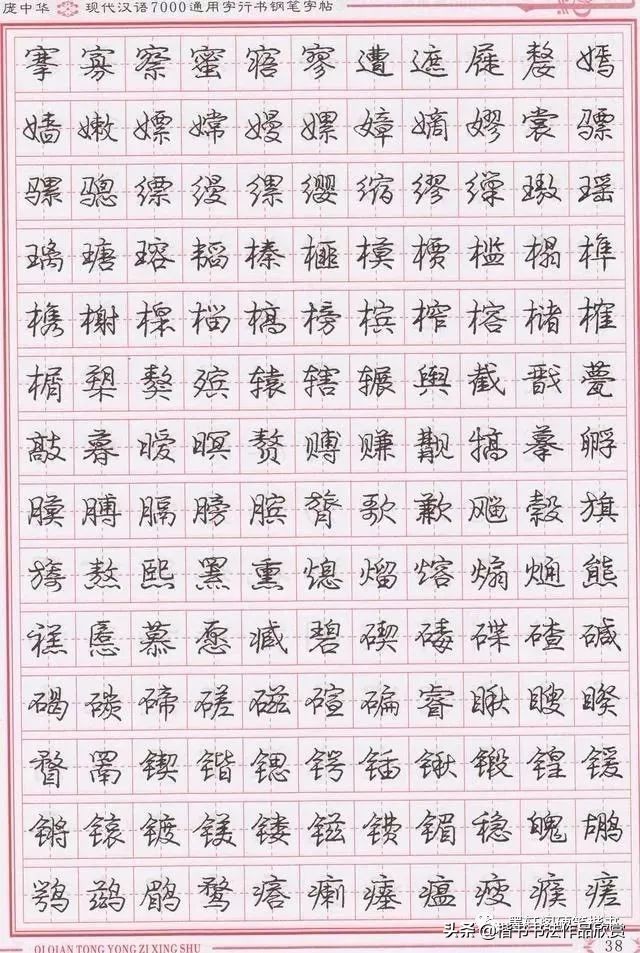 庞中华 现代汉语7000通用字行书钢笔字帖
搴寡察蜜寤寥遭遮屣嫠嫣
嫱嫩嫖嫦嫚嫘嫜嫡嫪裳骠
骡骢缥缦缧缨缩缪缫璈瑶
璃瑭瑢韬榛榧模槚槛榻榫
槜榭槔榴槁榜槟榨榕槠榷
榍犎獒殡辕辖辗舆截戬甍
敲暮暧暝赘赙赚觏犒摹孵
膜膊膈膀膑膂歌歉飗毂旗
旖熬熙罴熏熄熘熔煽熥熊
褡慝慕愿臧碧碶碡碟碴碱
碣碳碲磋磁碹碥睿瞅瞍睽
瞀罱锲锴锶锷锸锹锻锽锾
锵镀镁镂镃镄镅稳魄鹕
鹗鹚鹛鹜瘩瘌瘗瘟瘦瘊瘥
QI QIAN TONG YONG ZI XING SHU
墨轩阁硬笔楷书
头条@楷书书法作品欣赏
38